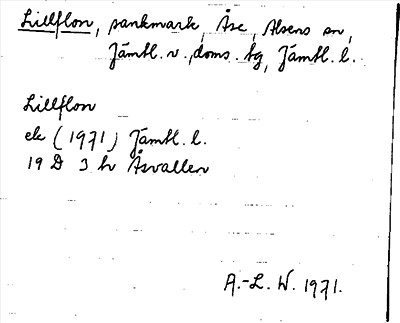 Lillflon, sankmark, Åse, Alsens sn,
Jämtl. v., doms. tg, Jämtl. l.
Lillflon
ek (1971) Jämtl. l.
19 D 3 h Åsvallen
A.-L. W. 1971.